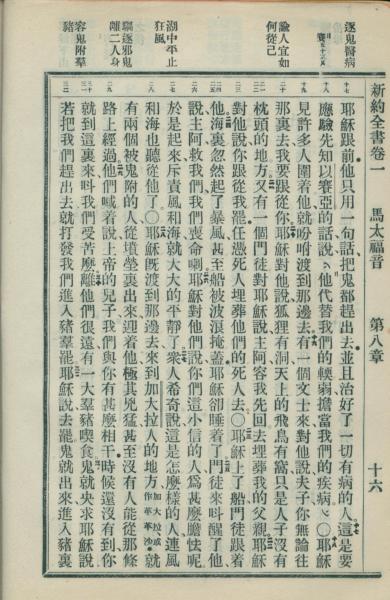 新約全書卷一 馬太福音 第八章 十六
逐鬼醫病
諭人宜如
何從己
湖中平止
狂風
驅逐邪鬼
離二人身
容鬼附羣
豬
耶穌跟前、他只用一句話、把鬼都趕出去、並且治好了一切有病的人、這是要
應驗先知以賽亞的話、說、他代替我們的輭弱、擔當我們的疾病、○耶穌
見許多人圍着他、就吩咐渡到那邊去、有一個文士來、對他說、夫子、你無論往
那裏去、我要跟從你、耶穌對他說、狐狸有洞、天上的飛鳥有窩、只是人子沒有
枕頭的地方、又有一個門徒對耶穌說、主阿、容我先回去埋葬我的父親、耶穌
對他說、你跟從我罷、任憑死人埋葬他們的死人去、○耶穌上了船、門徒跟着
他、海裏忽然起了暴風、甚至船被波浪掩蓋、耶穌卻睡着了、門徒來呌醒了他
說、主、救我們、我們喪命喇、耶穌對他們說、你們這小信的人、爲甚麽膽怯呢、
於是起來、斥責風和海、就大大的平靜了、衆人希奇說、這是怎麽樣的人、連風
和海也聽從他了、○耶穌旣渡到那邊去、來到加大拉人的地方、加大拉、或作革革沙就
有兩個被鬼附的人、從墳塋裏出來迎着他、極其兇猛、甚至沒有人能從那條
路上經過、他們喊着說、上帝的兒子、我們與你有甚麽相干、時候還沒有到、你
就到這裏來呌我們受苦麽、離他們很遠、有一大羣豬喫食、鬼就央求耶穌說、
若把我們趕出去、就打發我們進入豬羣罷、耶穌說、去罷、鬼就出來、進入豬裏